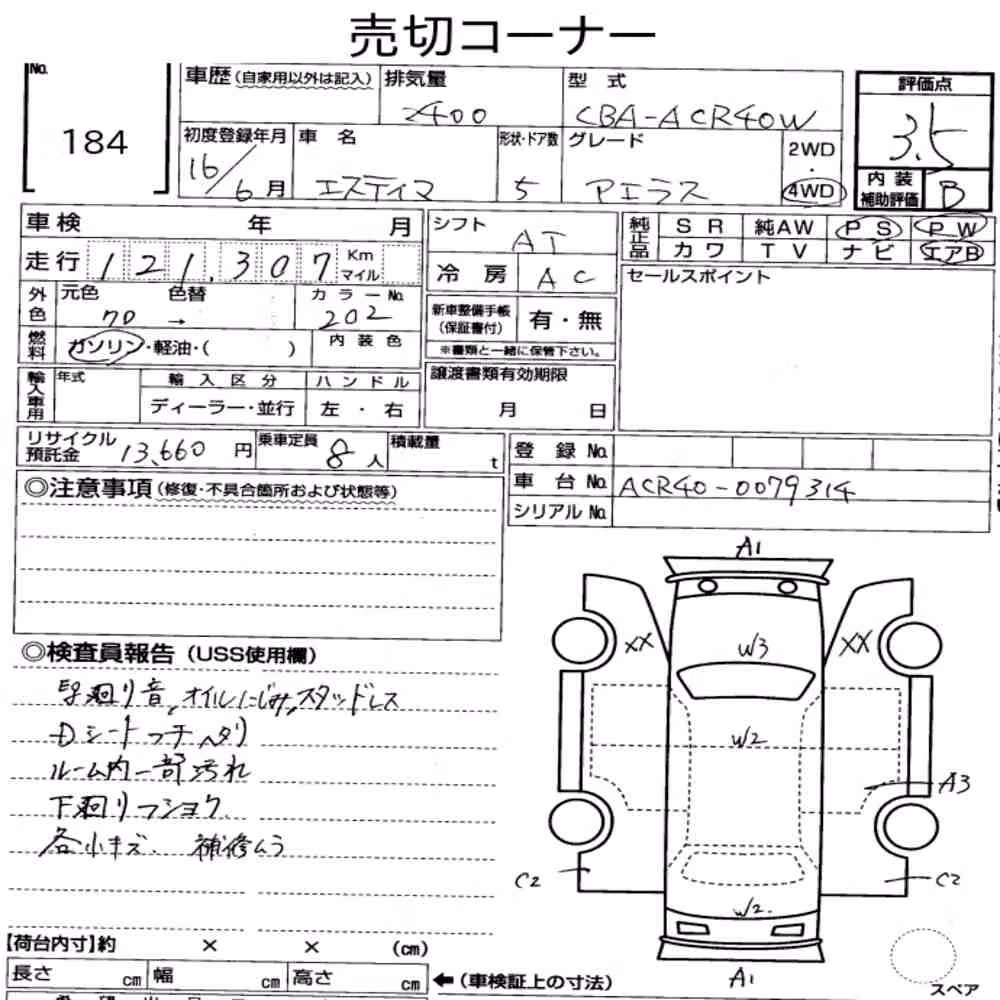 売切コーナー
No.
184
車歴(自家用以外は記入)
排気量
2400
型式
CBA-ACR40W
評価点
3.5
初度登録年月
16/6月
車名
エスティマ
形状・ドア数
5
グレード
アエラス
2WD
・
4WD
内装
補助評価
B
車検 年 月
走行
121,307
Km
マイル
シフト
AT
冷房
AC
純正品
SR 純AW PS PW
カワ TV ナビ エアB
外色
元色 色替
070 →
カラーNo.
202
新車整備手帳
(保証書付)
有・無
※書類と一緒に保管下さい。
セールスポイント
燃料
ガソリン・軽油・( )
内装色
輸入車用
年式
輸入区分
ディーラー・並行
ハンドル
左・右
譲渡書類有効期限
月 日
リサイクル
預託金
13,660円
乗車定員
8人
積載量
t
登録No.
車台No.
ACR40-0079314
シリアルNo.
◎注意事項(修復・不具合箇所および状態等)
◎検査員報告(USS使用欄)
足廻り音、オイルにじみ、スタッドレス
Dシートコゲ、ヘタリ
ルーム内一部汚れ
下廻りフショク
各小キズ、補修ムラ
A1
XX
W3
XX
W2
A3
C2
C2
W2
A1
スペア
【荷台内寸】約 × × (cm)
長さ cm 幅 cm 高さ cm
←(車検証上の寸法)